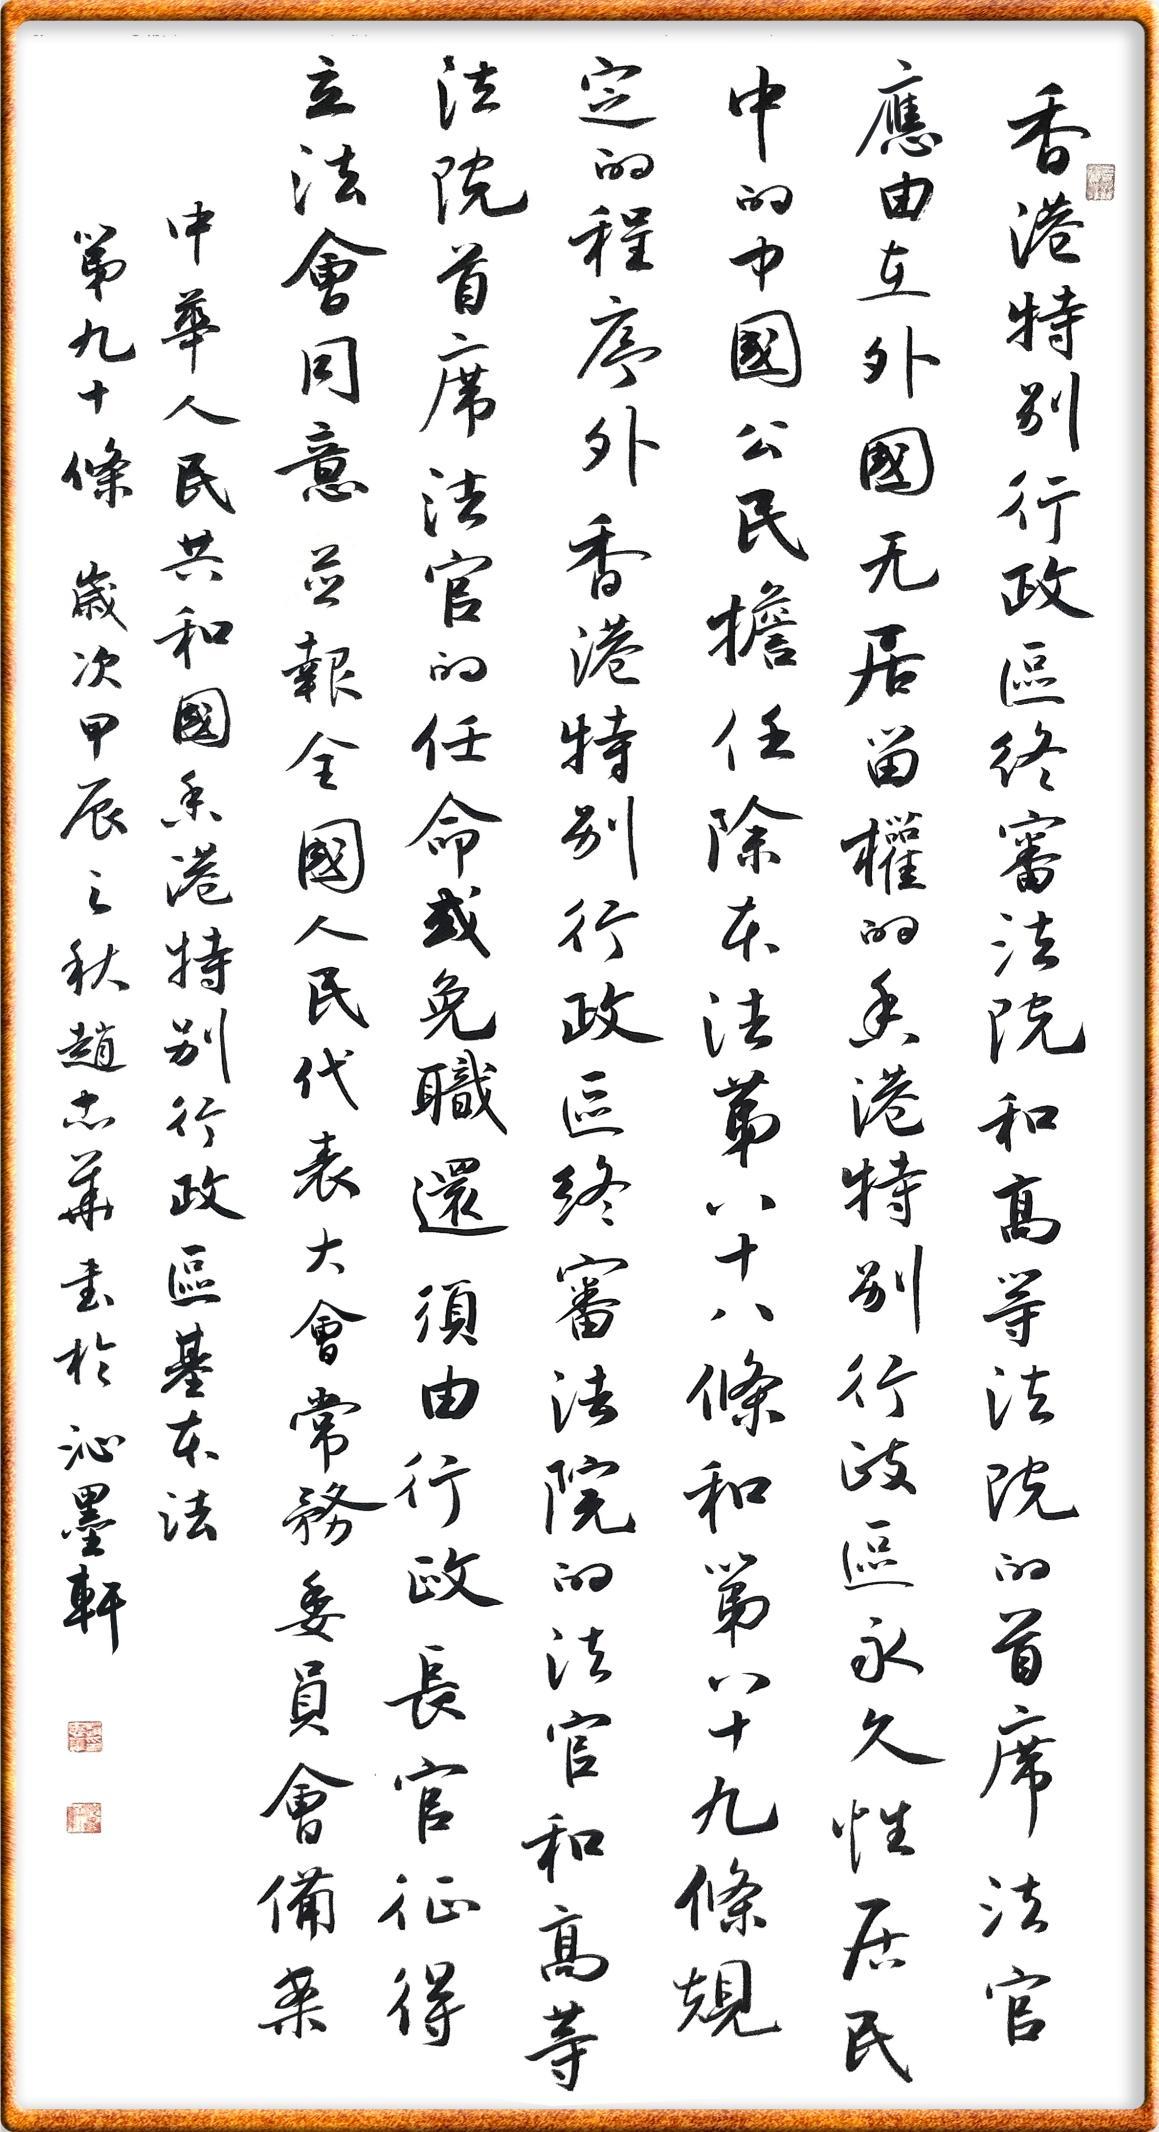 香港特别行政區终審法院和高等法院的首席法官
應由在外國无居留權的香港特别行政區永久性居民
中的中國公民擔任除本法第八十八條和第八十九條規
定的程序外香港特别行政區终審法院的法官和高等
法院首席法官的任命或免職還須由行政長官征得
立法會同意並報全國人民代表大會常務委員會備案
中華人民共和國香港特别行政區基本法
第九十條 歲次甲辰之秋趙志華書於沁墨軒